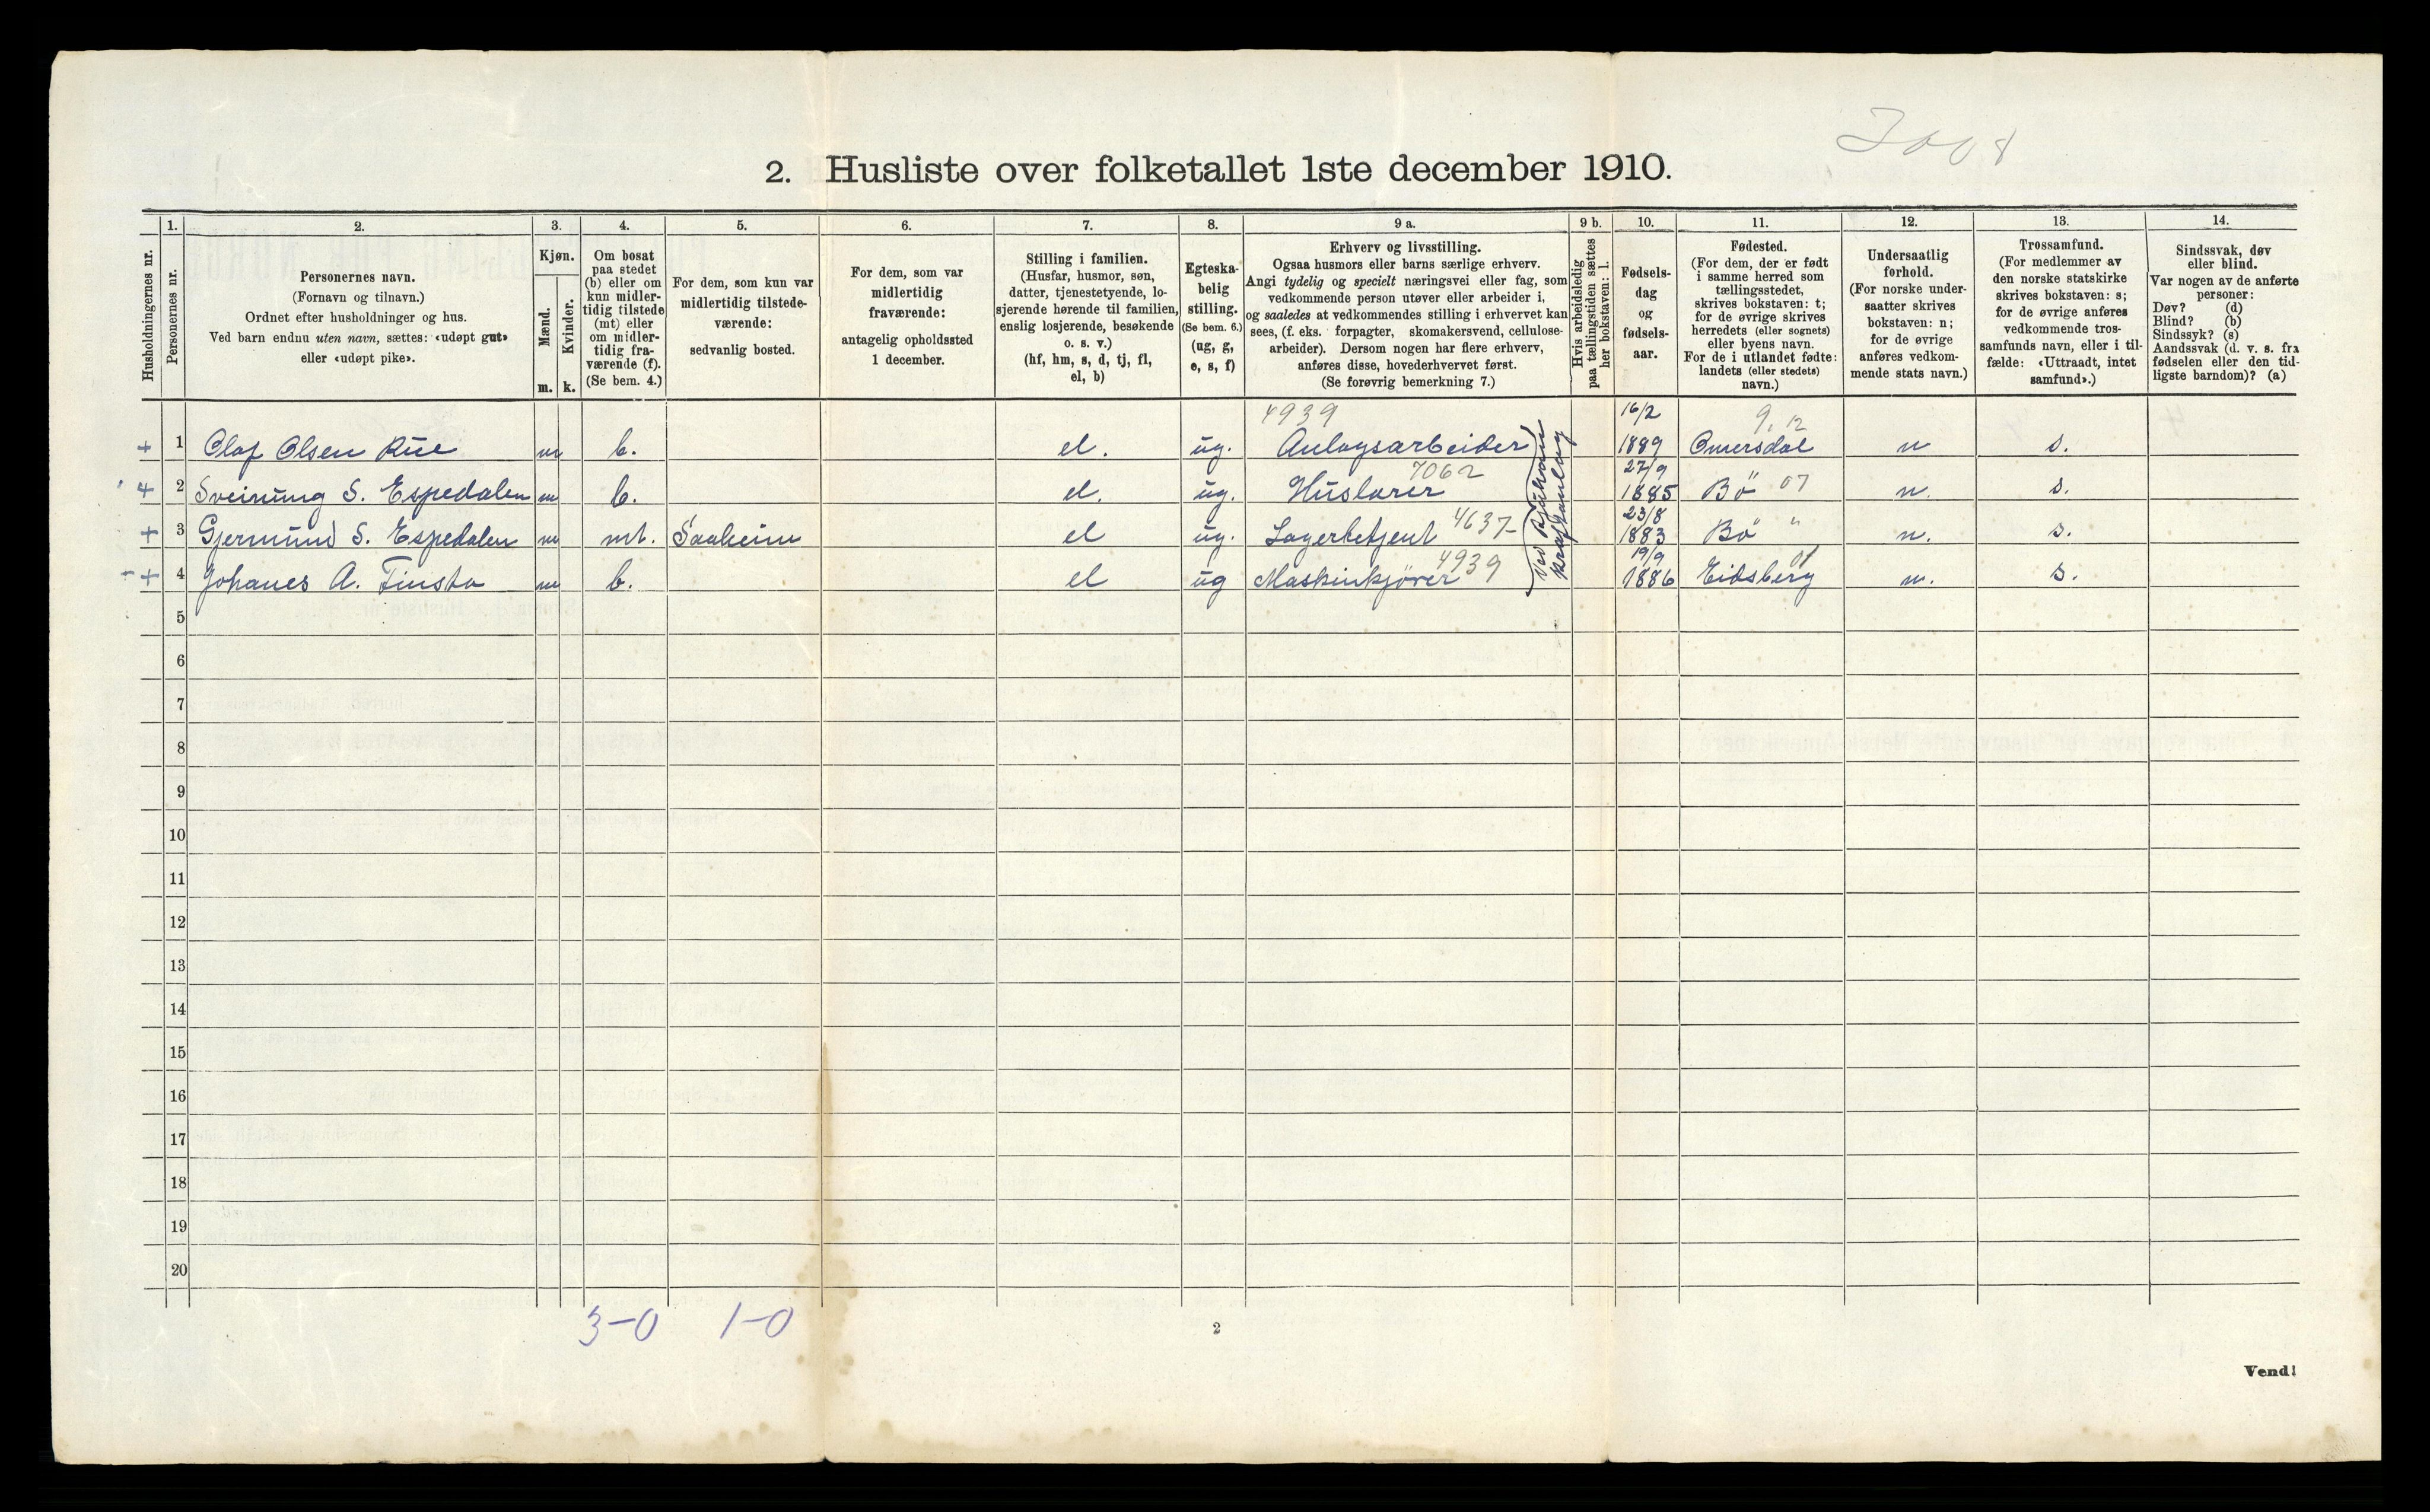 2. Husliste over folketallet 1ste december 1910.
1. 2. 3. 4. 5. 6. 7. 8. 9 a. 9 b. 10. 11. 12. 13. 14.
Husholdningernes nr.
Personernes nr.
Personernes navn.
(Fornavn og tilnavn.)
Ordnet efter husholdninger og hus.
Ved barn endnu uten navn, sættes: «udøpt gut»
eller «udøpt pike».
Kjøn.
Mænd.
m.
Kvinder.
k.
Om bosat
paa stedet
(b) eller om
kun midler-
tidig tilstede
(mt) eller
om midler-
tidig fra-
værende (f).
(Se bem. 4.)
For dem, som kun var
midlertidig tilstede-
værende:
sedvanlig bosted.
For dem, som var
midlertidig
fraværende:
antagelig opholdssted
1 december.
Stilling i familien.
(Husfar, husmor, søn,
datter, tjenestetyende, lo-
sjerende hørende til familien,
enslig losjerende, besøkende
o. s. v.)
(hf, hm, s, d, tj, fl,
el, b)
Egteska-
belig
stilling.
(Se bem. 6.)
(ug, g,
e, s, f)
Erhverv og livsstilling.
Ogsaa husmors eller barns særlige erhverv.
Angi tydelig og specielt næringsvei eller fag, som
vedkommende person utøver eller arbeider i,
og saaledes at vedkommendes stilling i erhvervet kan
sees, (f. eks. forpagter, skomakersvend, cellulose-
arbeider). Dersom nogen har flere erhverv,
anføres disse, hovederhvervet først.
(Se forøvrig bemerkning 7.)
Hvis arbeidsledig
paa tællingstiden sættes
her bokstaven: l.
Fødsels-
dag
og
fødsels-
aar.
Fødested.
(For dem, der er født
i samme herred som
tællingsstedet,
skrives bokstaven: t;
for de øvrige skrives
herredets (eller sognets)
eller byens navn.
For de i utlandet fødte:
landets (eller stedets)
navn.)
Undersaatlig
forhold.
(For norske under-
saatter skrives
bokstaven: n;
for de øvrige
anføres vedkom-
mende stats navn.)
Trossamfund.
(For medlemmer av
den norske statskirke
skrives bokstaven: s;
for de øvrige anføres
vedkommende tros-
samfunds navn, eller i til-
fælde: «Uttraadt, intet
samfund».)
Sindssvak, døv
eller blind.
Var nogen av de anførte
personer:
Døv? (d)
Blind? (b)
Sindssyk? (s)
Aandssvak (d. v. s. fra
fødselen eller den tid-
ligste barndom)? (a)
4939 16/2 9. 12
+ 1 Olaf Olsen Rue m b. el. ug. Anlægsarbeider 1889 Omersdal n s.
7062 27/9
+ 2 Sveinung S. Espedalen m b. el. ug. Huslærer 1885 Bö 07 n. s.
23/8
+ 3 Gjermund S. Espedalen m mt. Saaheim el ug. Lagerbetjent 4637 1883 Bö " n. s.
4939 19/9 01
+ 4 Johanes A. Finsta m b. el ug Maskinkjörer 1886 Eidsberg n. s.
Ved Rjukan
kraftanlæg
5
6
7
8
9
10
11
12
13
14
15
16
17
18
19
20
3-0 1-0
2
Vend!